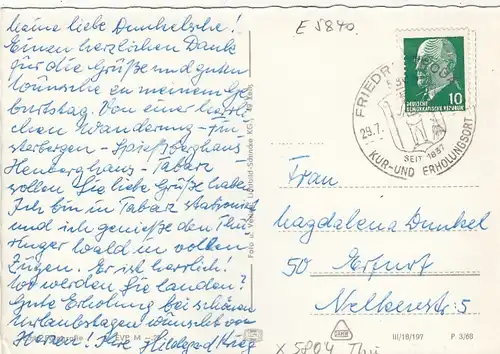 Meine liebe Dunkelsche!
Einen herzlichen Dank
für die Grüße und guten
Wünsche zu meinem Ge-
burtstag. Von einer herrli-
chen Wanderung - Fin-
sterbergen - Spießberghaus-
Heuberghaus - Tabarz
sollen Sie liebe Grüße haben.
Ich bin in Tabarz stationiert
und ich genieße den Thü-
ringer Wald in vollen
Zügen. Er ist herrlich!
Wo werden Sie landen?
Gute Erholung bei schönen
Urlaubstagen wünscht von
Herzen! Ihre Hildegard Krieg
E 5840.
FRIEDRICHRODA
29.7.
SEIT 1837
KUR- UND ERHOLUNGSORT
DEUTSCHE
DEMOKRATISCHE REPUBLIK
10
Frau
Magdalena Dunkel
50 Erfurt
Nelkenstr. 5
III/18/197 P 3/68
X 5804 Thü